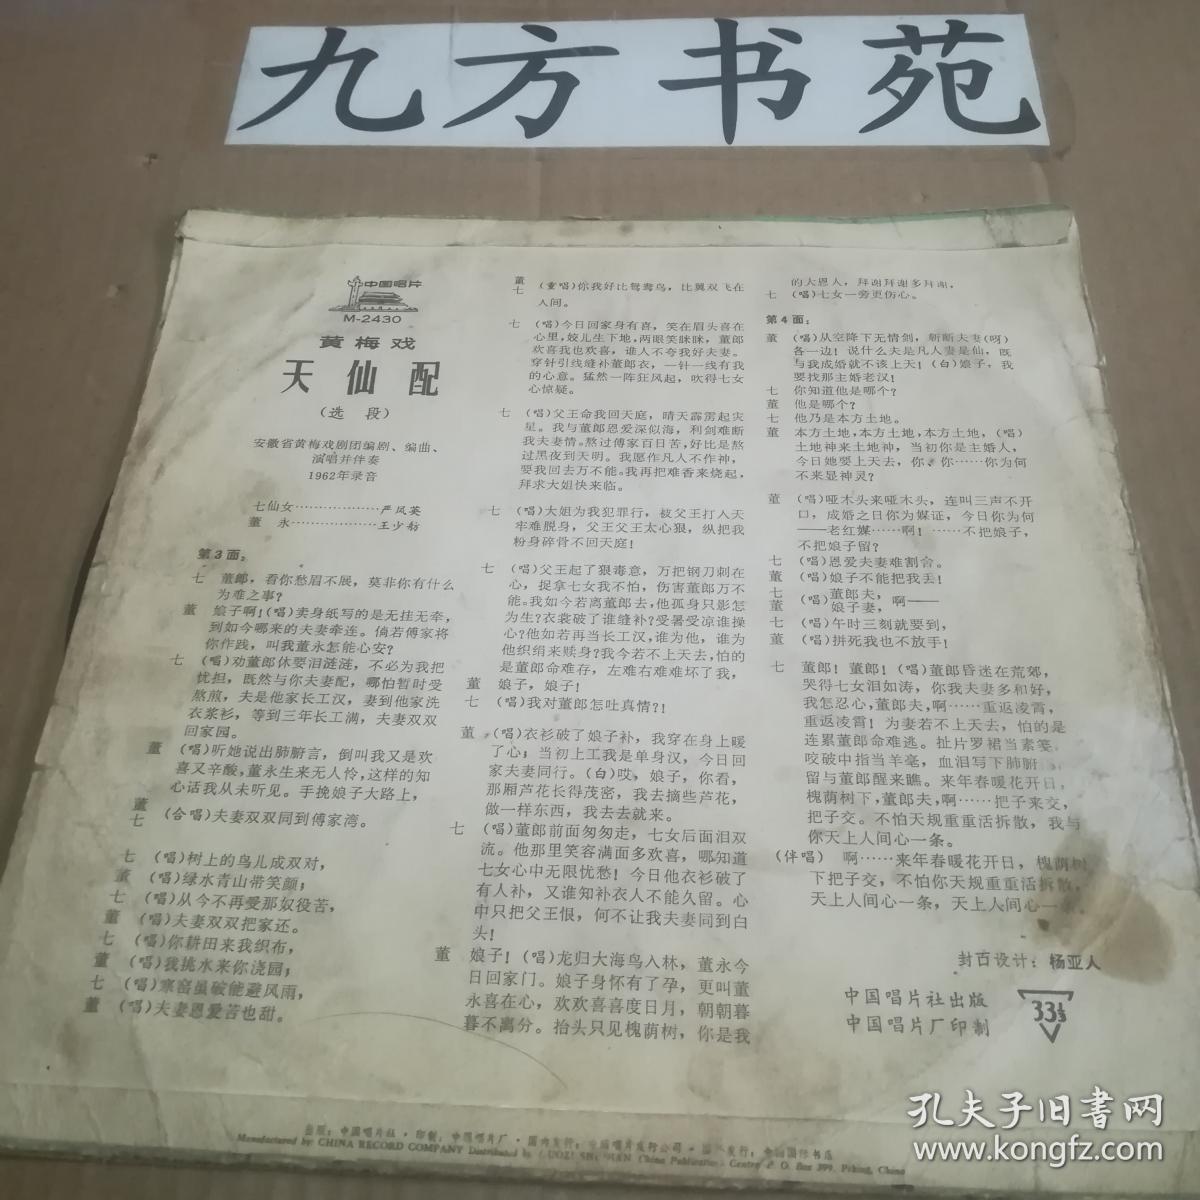 九方书苑
中国唱片
M-2430
黄梅戏
天仙配
（选段）
安徽省黄梅戏剧团编剧、编曲、
演唱并伴奏
1962年录音
七仙女………………严凤英
董　永………………王少舫
第3面：
七　董郎，看你愁眉不展，莫非你有什么
为难之事？
董　娘子啊！（唱）卖身纸写的是无挂无牵，
到如今哪来的夫妻牵连。倘若傅家将
你作践，叫我董永怎能心安？
七　（唱）劝董郎休要泪涟涟，不必为我把
忧担，既然与你夫妻配，哪怕暂时受
熬煎，夫是他家长工汉，妻到他家洗
衣浆衫，等到三年长工满，夫妻双双
回家园。
董　（唱）听她说出肺腑言，倒叫我又是欢
喜又辛酸，董永生来无人怜，这样的知
心话我从未听见。手挽娘子大路上，
董
七　（合唱）夫妻双双同到傅家湾。
七　（唱）树上的鸟儿成双对，
董　（唱）绿水青山带笑颜；
七　（唱）从今不再受那奴役苦，
董　（唱）夫妻双双把家还。
七　（唱）你耕田来我织布，
董　（唱）我挑水来你浇园；
七　（唱）寒窑虽破能避风雨，
董　（唱）夫妻恩爱苦也甜。
董
七　（重唱）你我好比鸳鸯鸟，比翼双飞在
人间。
七　（唱）今日回家身有喜，笑在眉头喜在
心里，姣儿生下地，两眼笑眯眯，董郎
欢喜我也欢喜，谁人不夸我好夫妻。
穿针引线缝补董郎衣，一针一线有我
的心意。猛然一阵狂风起，吹得七女
心惊疑。
七　（唱）父王命我回天庭，晴天霹雳起灾
星。我与董郎恩爱深似海，利剑难断
我夫妻情。熬过傅家百日苦，好比是熬
过黑夜到天明。我愿作凡人不作神，
要我回去万不能。我再把难香来烧起，
拜求大姐快来临。
七　（唱）大姐为我犯罪行，被父王打入天
牢难脱身，父王父王太心狠，纵把我
粉身碎骨不回天庭！
七　（唱）父王起了狠毒意，万把钢刀刺在
心，捉拿七女我不怕，伤害董郎万不
能。我如今若离董郎去，他孤身只影怎
为生？衣裳破了谁缝补？受暑受凉谁操
心？他如若再当长工汉，谁为他，谁为
他织绢来赎身？我今若不上天去，怕的
是董郎命难存，左难右难难坏了我，
董　娘子，娘子！
七　（唱）我对董郎怎吐真情？！
董　（唱）衣衫破了娘子补，我穿在身上暖
了心；当初上工我是单身汉，今日回
家夫妻同行。（白）哎，娘子，你看，
那厢芦花长得茂密，我去摘些芦花，
做一样东西，我去去就来。
七　（唱）董郎前面匆匆走，七女后面泪双
流。他那里笑容满面多欢喜，哪知道
七女心中无限忧愁！今日他衣衫破了
有人补，又谁知补衣人不能久留。心
中只把父王恨，何不让我夫妻同到白
头！
董　娘子！（唱）龙归大海鸟入林，董永今
日回家门。娘子身怀有了孕，更叫董
永喜在心，欢欢喜喜度日月，朝朝暮
暮不离分。抬头只见槐荫树，你是我
的大恩人，拜谢拜谢多拜谢，
七　（唱）七女一旁更伤心。
第4面：
董　（唱）从空降下无情剑，斩断夫妻（呀）
各一边！说什么夫是凡人妻是仙，既
与我成婚就不该上天！（白）娘子，我
要找那主婚老汉！
七　你知道他是哪个？
董　他是哪个？
七　他乃是本方土地。
董　本方土地，本方土地，本方土地，（唱）
土地神来土地神，当初你是主婚人，
今日她要上天去，你，你……你为何
不来显神灵？
董　（唱）哑木头来哑木头，连叫三声不开
口，成婚之日你为媒证，今日你为何
——老红媒……啊！……不把娘子，
不把娘子留？
七　（唱）恩爱夫妻难割舍。
董　（唱）娘子不能把我丢！
七　（唱）董郎夫，
董　娘子妻，啊——
七　（唱）午时三刻就要到，
董　（唱）拼死我也不放手！
七　董郎！董郎！（唱）董郎昏迷在荒郊，
哭得七女泪如涛，你我夫妻多和好，
我怎忍心，董郎夫，啊……重返凌霄，
重返凌霄！为妻若不上天去，怕的是
连累董郎命难逃。扯片罗裙当素笺，
咬破中指当羊毫，血泪写下肺腑
留与董郎醒来瞧。来年春暖花开日，
槐荫树下，董郎夫，啊……把子来交，
把子交。不怕天规重重活拆散，我与
你天上人间心一条。
（伴唱）　啊……来年春暖花开日，槐荫树
下把子交，不怕你天规重重活拆散，
天上人间心一条，天上人间心一条。
封面设计：杨亚人
中国唱片社出版
中国唱片厂印制
33⅓
出版：中国唱片社·印制：中国唱片厂·国内发行：中国唱片发行公司·国外发行：中国国际书店
Manufactured by CHINA RECORD COMPANY Distributed by GUOZI SHUDIAN China Publication Centre P. O. Box 399, Peking, China
孔夫子旧书网
www.kongfz.com